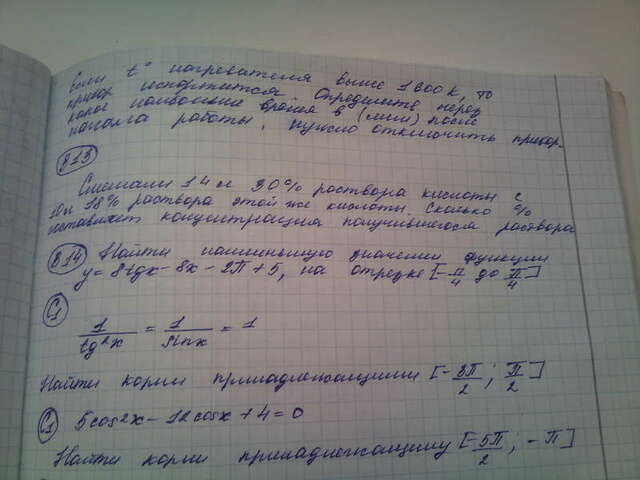 Если t° нагревателя выше 1600 К, то
прибор испортится. Определите через
какое наибольшее время в (мин) после
начала работы, нужно отключить прибор.
B13
Смешали 14 л 30% раствора кислоты с
10 л 18% раствора этой же кислоты. Сколько %
составляет концентрация получившегося раствора
B14 Найти наименьшую значении функции
y = 8tgx - 8x - 2π + 5, на отрезке [-π/4 до π/4]
C1
1/tg²x = 1/sinx = 1
Найти корни принадлежащими [-3π/2 ; π/2]
C1 5cos2x - 12cosx + 4 = 0
Найти корни принадлежащиму [-5π/2 ; -π]